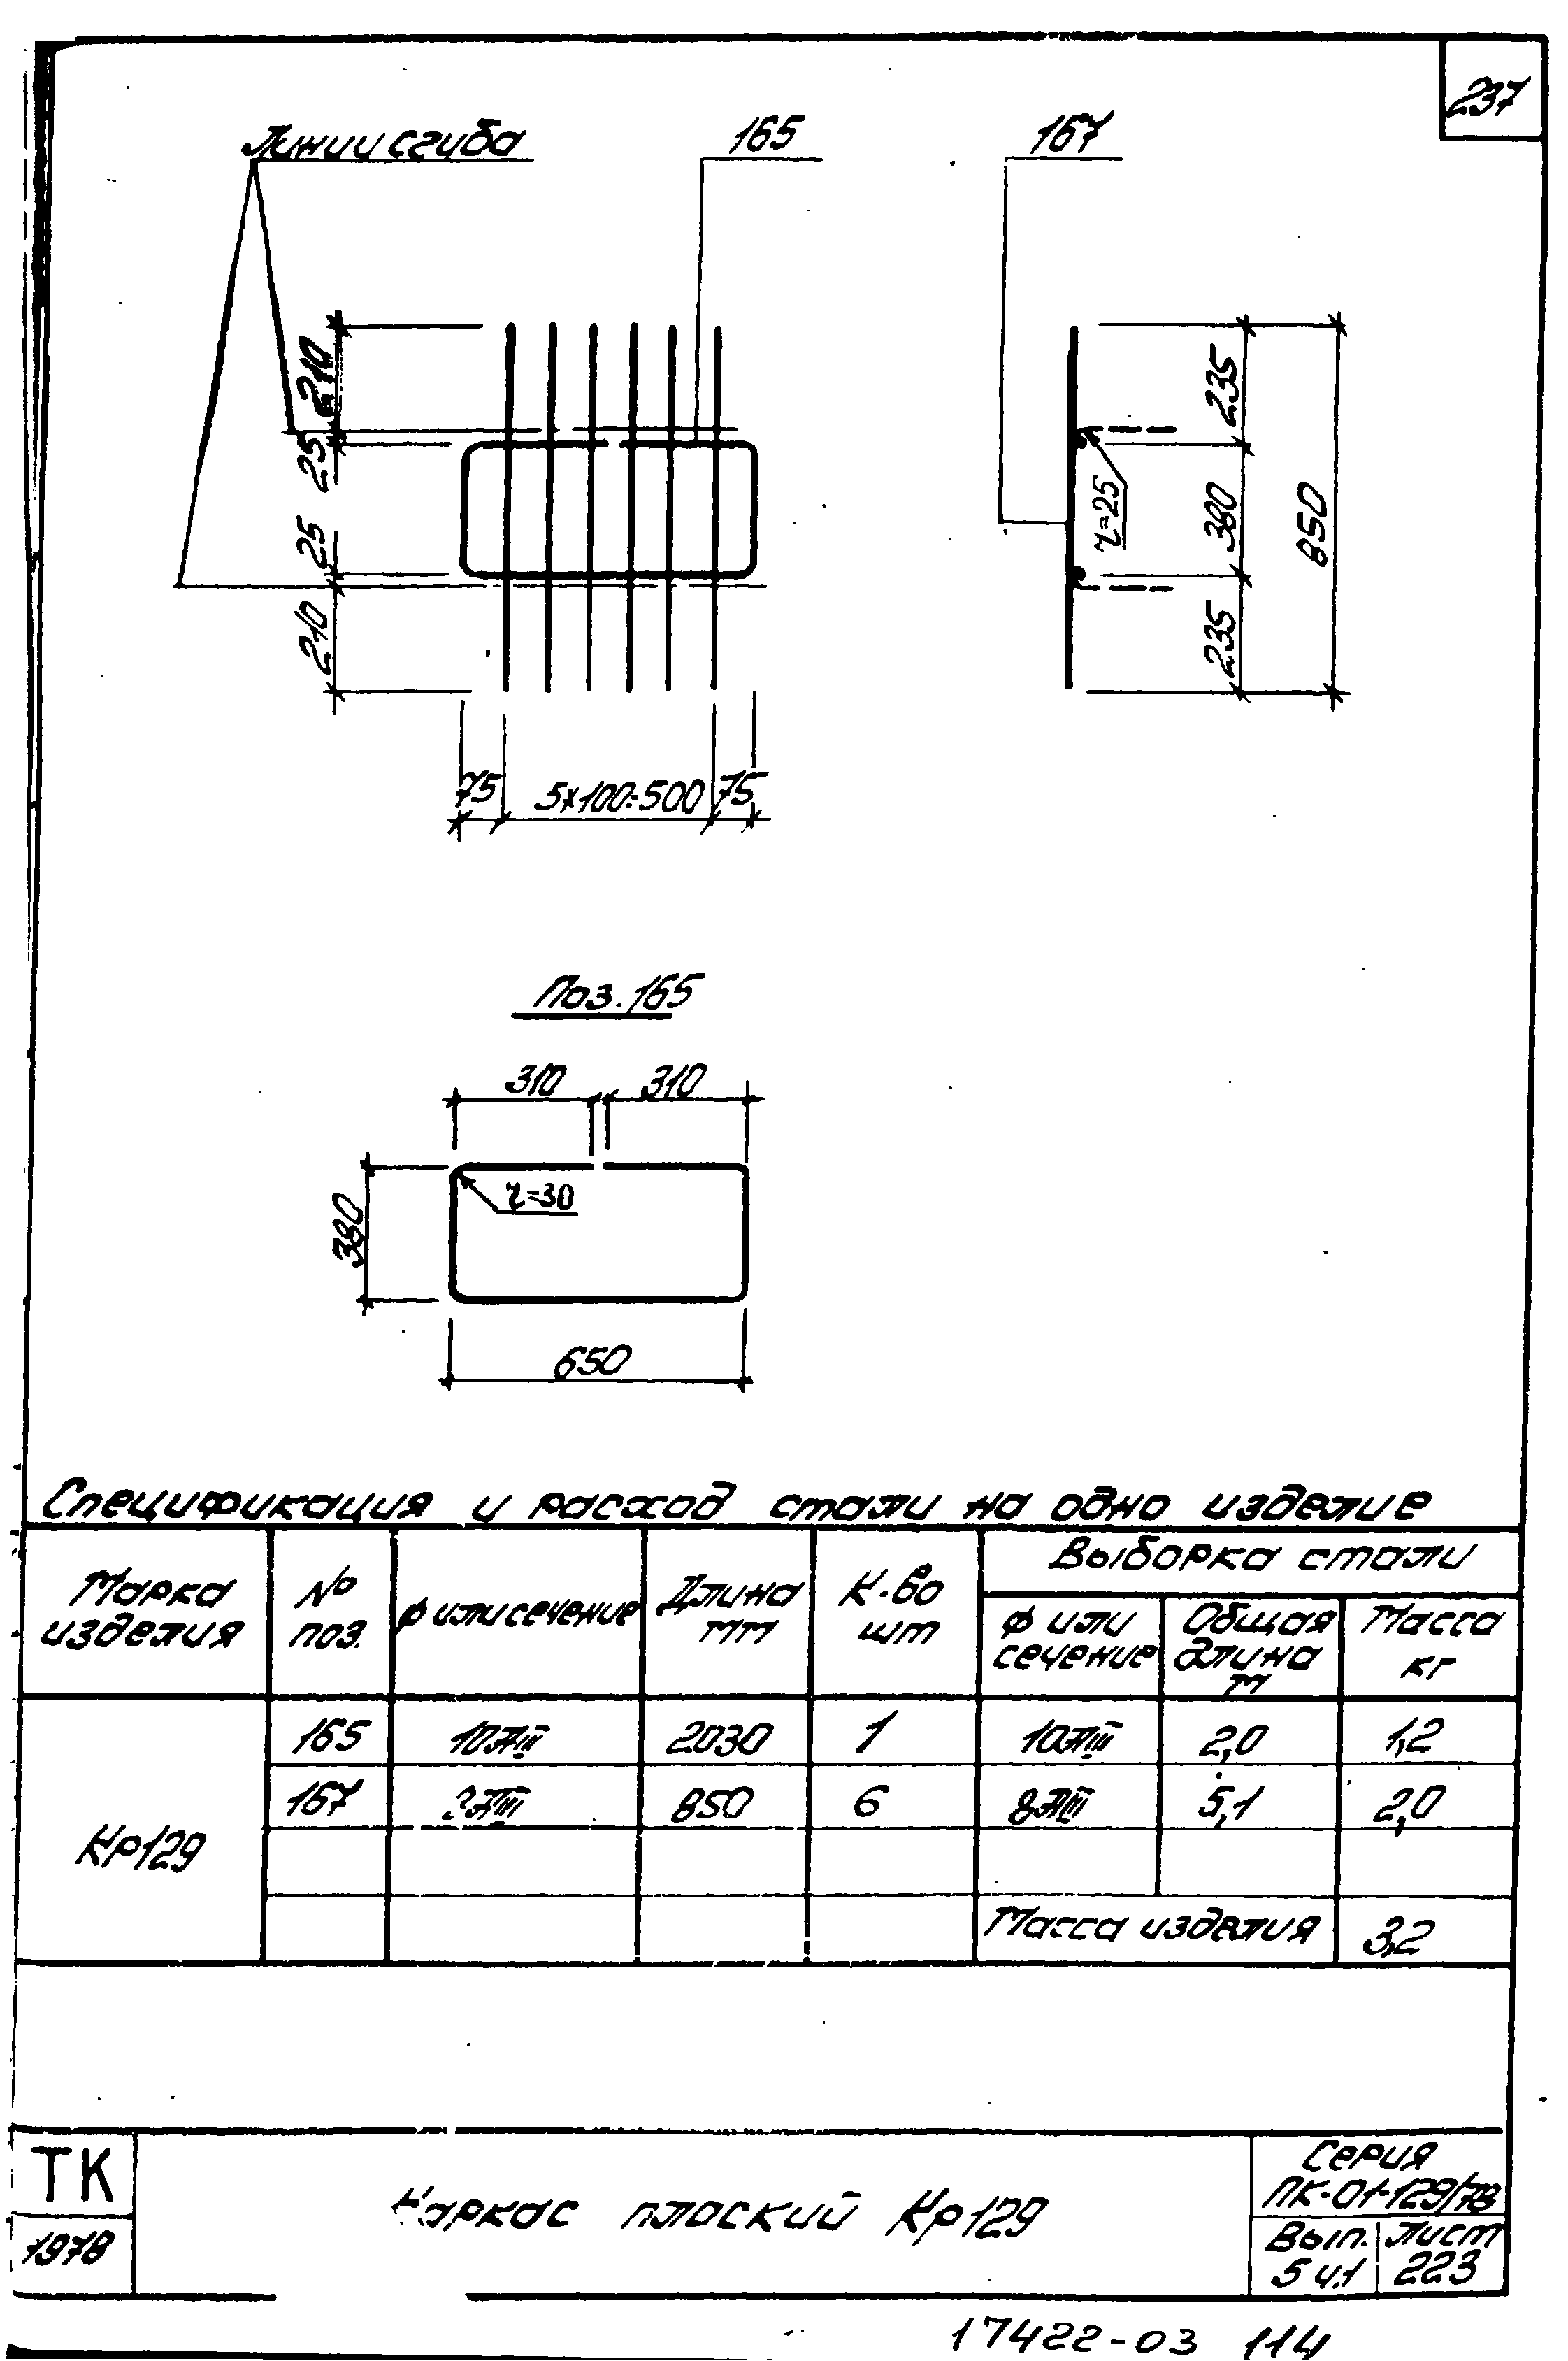 237
Линии сгиба
165
167
210
25
25
210
75
5х100=500
75
235
380
235
850
r=25
Поз. 165
310
310
380
r=30
650
Спецификация и расход стали на одно изделие
Марка изделия
№ поз.
ф или сечение
Длина мм
К-во шт
Выборка стали
ф или сечение
Общая длина м
Масса кг
Кр129
165 10АIII 2030 1 10АIII 2,0 1,2
167 8АIII 850 6 8АIII 5,1 2,0
Масса изделия 3,2
ТК
1978
Каркас плоский Кр129
Серия
ПК-01-129/78
Вып. 5 ч.1
Лист 223
17422-03 114